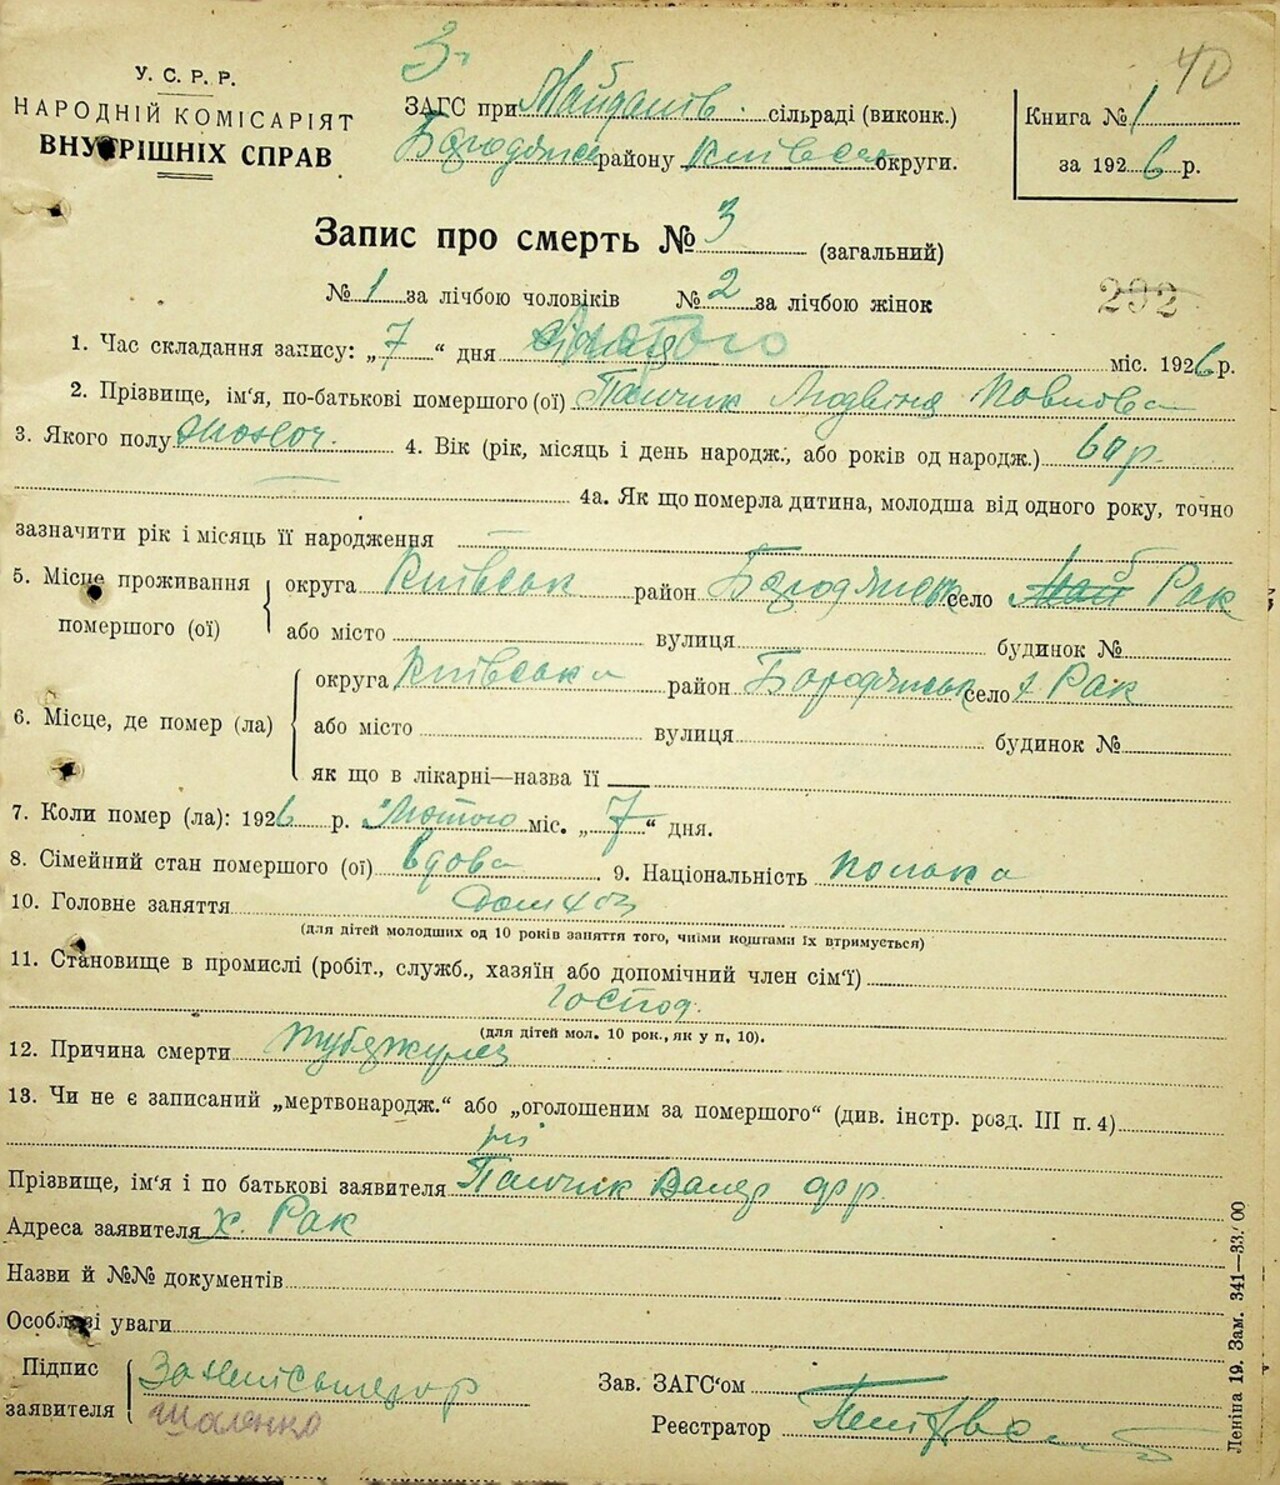 3
40
У. С. Р. Р.
НАРОДНІЙ КОМІСАРІЯТ
ВНУТРІШНІХ СПРАВ
ЗАГС при сільраді (виконк.)
району округи.
Книга № 1
за 1926 р.
Запис про смерть № 3 (загальний)
№ 1 за лічбою чоловіків № 2 за лічбою жінок
292
1. Час складання запису: „7“ дня Лютого міс. 1926 р.
2. Прізвище, ім'я, по-батькові помершого (ої) Панчик Людвіня Павлова
3. Якого полу 4. Вік (рік, місяць і день народж., або років од народж.) 60 р.
4а. Як що померла дитина, молодша від одного року, точно
зазначити рік і місяць її народження
5. Місце проживання помершого (ої) округа Київськ район село Рак
або місто вулиця будинок №
6. Місце, де помер (ла) округа Київська район Бородянськ село х Рак
або місто вулиця будинок №
як що в лікарні—назва її
7. Коли помер (ла): 1926 р. Лютого міс. „7“ дня.
8. Сімейний стан помершого (ої) вдова 9. Національність полька
10. Головне заняття
(для дітей молодших од 10 років заняття того, чиїми коштами їх втримується)
11. Становище в промислі (робіт., служб., хазяїн або допомічний член сім'ї)
господ.
(для дітей мол. 10 рок., як у п, 10).
12. Причина смерти
13. Чи не є записаний „мертвонародж.“ або „оголошеним за помершого“ (див. інстр. розд. III п. 4)
ні
Прізвище, ім'я і по батькові заявителя Панчик
Адреса заявителя х. Рак
Назви й №№ документів
Особливі уваги
Підпис заявителя За
Шаленко
Зав. ЗАГС'ом
Реєстратор
Леніна 19. Зам. 341—33.